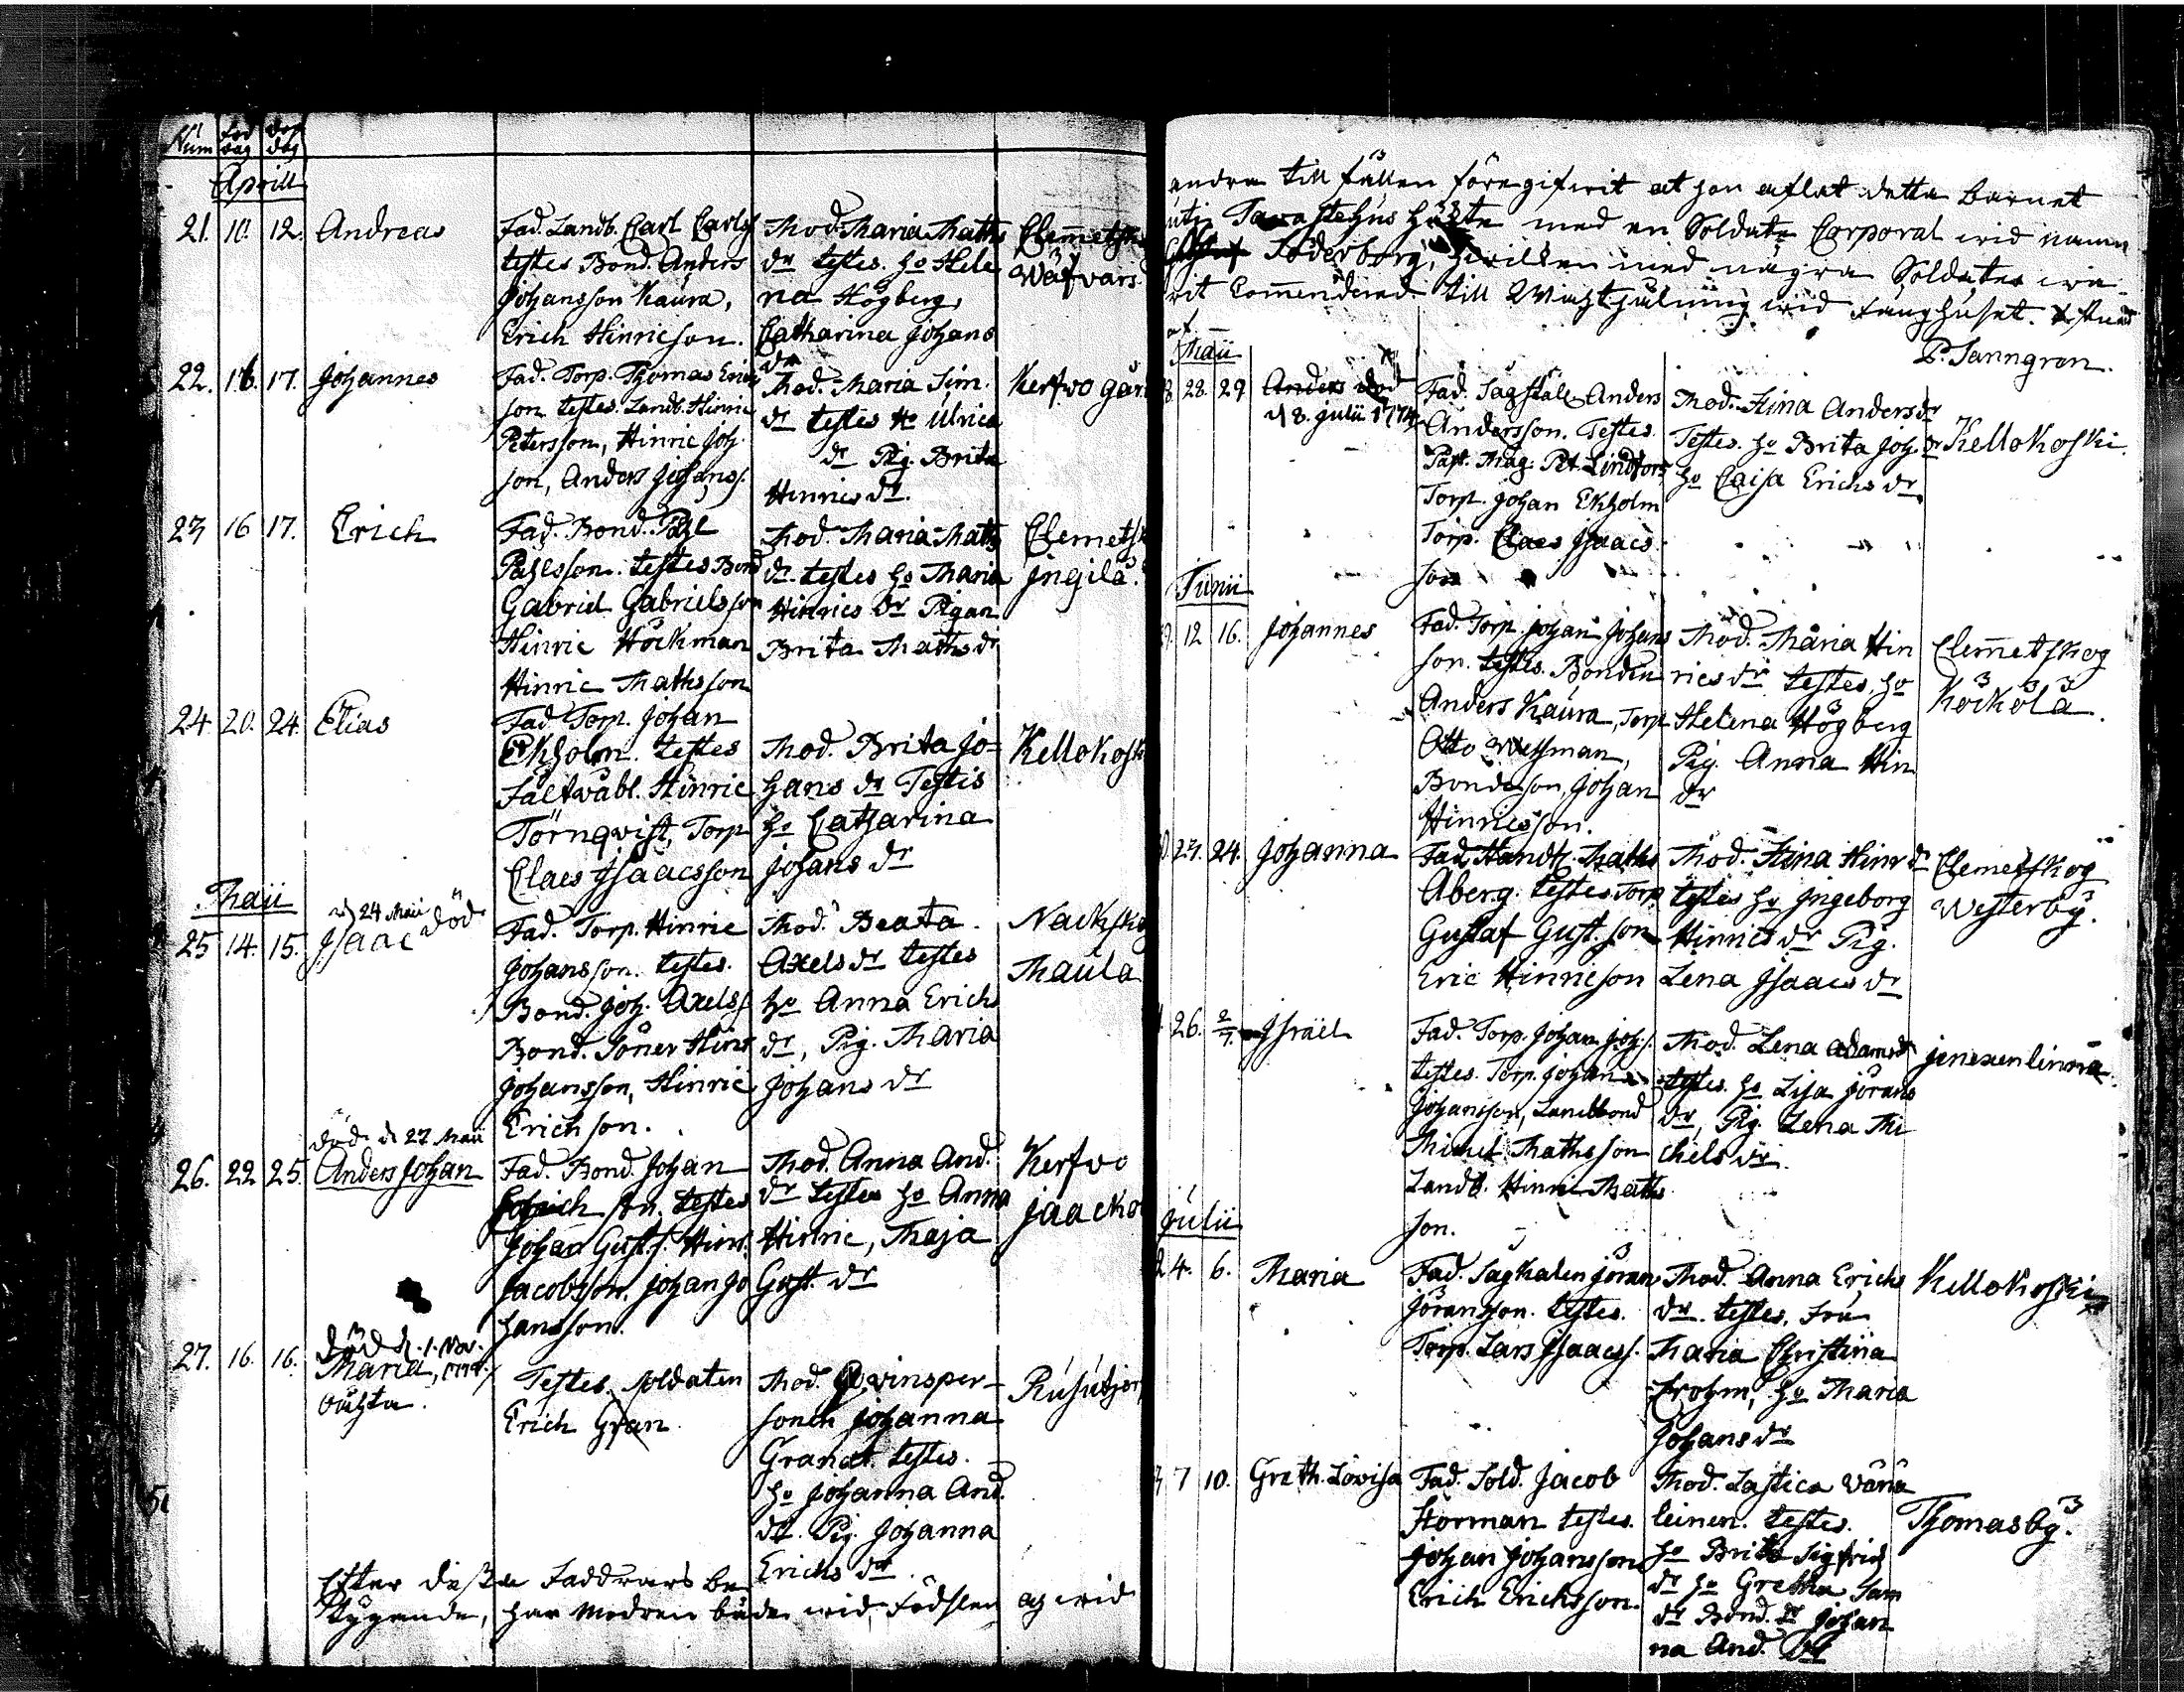 Num föd dag döp dag
Aprill
21. 10. 12. Andreas Fad. Landb. Carl Carls Mod. Maria Maths Clemetsk
testes Bond. Anders dr testes. ho Hele Wäfvars
Johansson Kaura, na Högberg,
Erich Hinricson. Catharina Johans
dr
22. 16. 17. Johannes Fad. Torp. Thomas Eric Mod. Maria Sim. Kerfvo går
son testes. Landb. Hinric dr testes Ho Ulrica
Petersson, Hinric Joh. dr Pig. Brita
son, Anders Johans. Hinrics dr.
23 16 17. Erich Fad. Bond. Påhl Mod. Maria Maths Clemetsk
Påhlsson. testes Bond dr testes ho Maria Jngila.
Gabriel Gabrielsson Hinrics dr Pigan
Hinric Höckman Brita Maths dr
Hinric Mathsson
24. 20. 24. Elias Fad. Torp. Johan
Ekholm. testes Mod. Brita Jo= Kellokosk
Fältwäbl. Hinric hans dr Testis
Törnqvist, Torp ho Catharina
Claes Jsaacsson Johans dr
Maii
d 24 Maii död
25 14. 15. Jsaac Fad. Torp. Hinric Mod. Beata Nackskog
Johansson. testes. Axels dr testes Maula
Bond. Joh. Axelss ho Anna Erichs
Bond. Söner Hinr dr, Pig. Maria
Johansson, Hinric Johans dr
Erichson.
död d 27 Maii
26. 22 25. Anders Johan Fad. Bond. Johan Mod. Anna And. Kerfvo
son. testes dr testes ho Anna Jaacko
Johan Gusts. Hinr. Hinric, Maja
Jacobsson. Johan Jo Gust. dr
hansson.
död d. 1. Nov.
27. 16. 16. Maria, Testes. Soldaten Mod. Qvinsper-
oächta. Erich Gran sonen Johanna
Grandt. testes.
ho Johanna And.
dr. Pig. Johanna
Erichs dr.
Efter desse Faddrars be
tygande, har modren både wid födslen og wid
andra tillfällen föregifwit at hon aflat detta barnet
uti Tavastehus med en Soldate Corporal wid namn
Söderborg, hwilken med några Soldater wa-
rit Commenderad till Wagthållning wid fånghuset.
P. Sanngren.
Maii
28. 29 Anders död Fad. Sågställ. Anders Mod. Stina Anders dr
d 8. Julii 1774 Andersson. Testes. Testes. ho Brita Joh. dr Kellokoski.
Past. Mag. Pet. Lindfors ho Caisa Erichs dr
Torp. Johan Ekholm
Torp. Claes Jsaacs
son
Junii
12 16. Johannes Fad. Torp Johan Johans Mod. Maria Hin Clemetskog
son. testes. Bonden rics dr testes. ho Köckölä.
Anders Kaura, Torp Helena Högberg
Otto Pig. Anna Hin
Bondeson, Johan dr
Hinricsson.
23. 24. Johanna Fad. Handtl. Maths Mod. Stina Hinr dr Clemetskog
Aberg. testes Torp testes ho Jngeborg Westerby.
Gustaf Gust. son Hinrics dr Pig.
Eric Hinricson Lena Jsaacs dr
26. 2/7. Jsraël Fad. Torp. Johan Johs. Mod. Lena Adams dr Jenexenlinna
testes. Torp. Johan testes. ho Lisa Jörans
Johansson, Landbond dr, Pig. Lena Mi
Michel Mathsson chels dr.
Landb. Hinric Maths
son.
Julii
4. 6. Maria Fad. Sågkalen Jöran Mod. Anna Erichs Kellokoski
Jöransson. testes. dr. testes. Fru
Torp. Lars Jsaacss. Maria Christina
Frohm, ho Maria
Johans dr
7 10. Greth. Lovisa Fad. Sold. Jacob Mod. Wänä
Störman testes. leinen. testes. Thomasby.
Johan Johansson ho Brita Sigfrids
Erich Erichsson. dr ho Gretha Sam
dr Bond. dr Johan
na And. dr